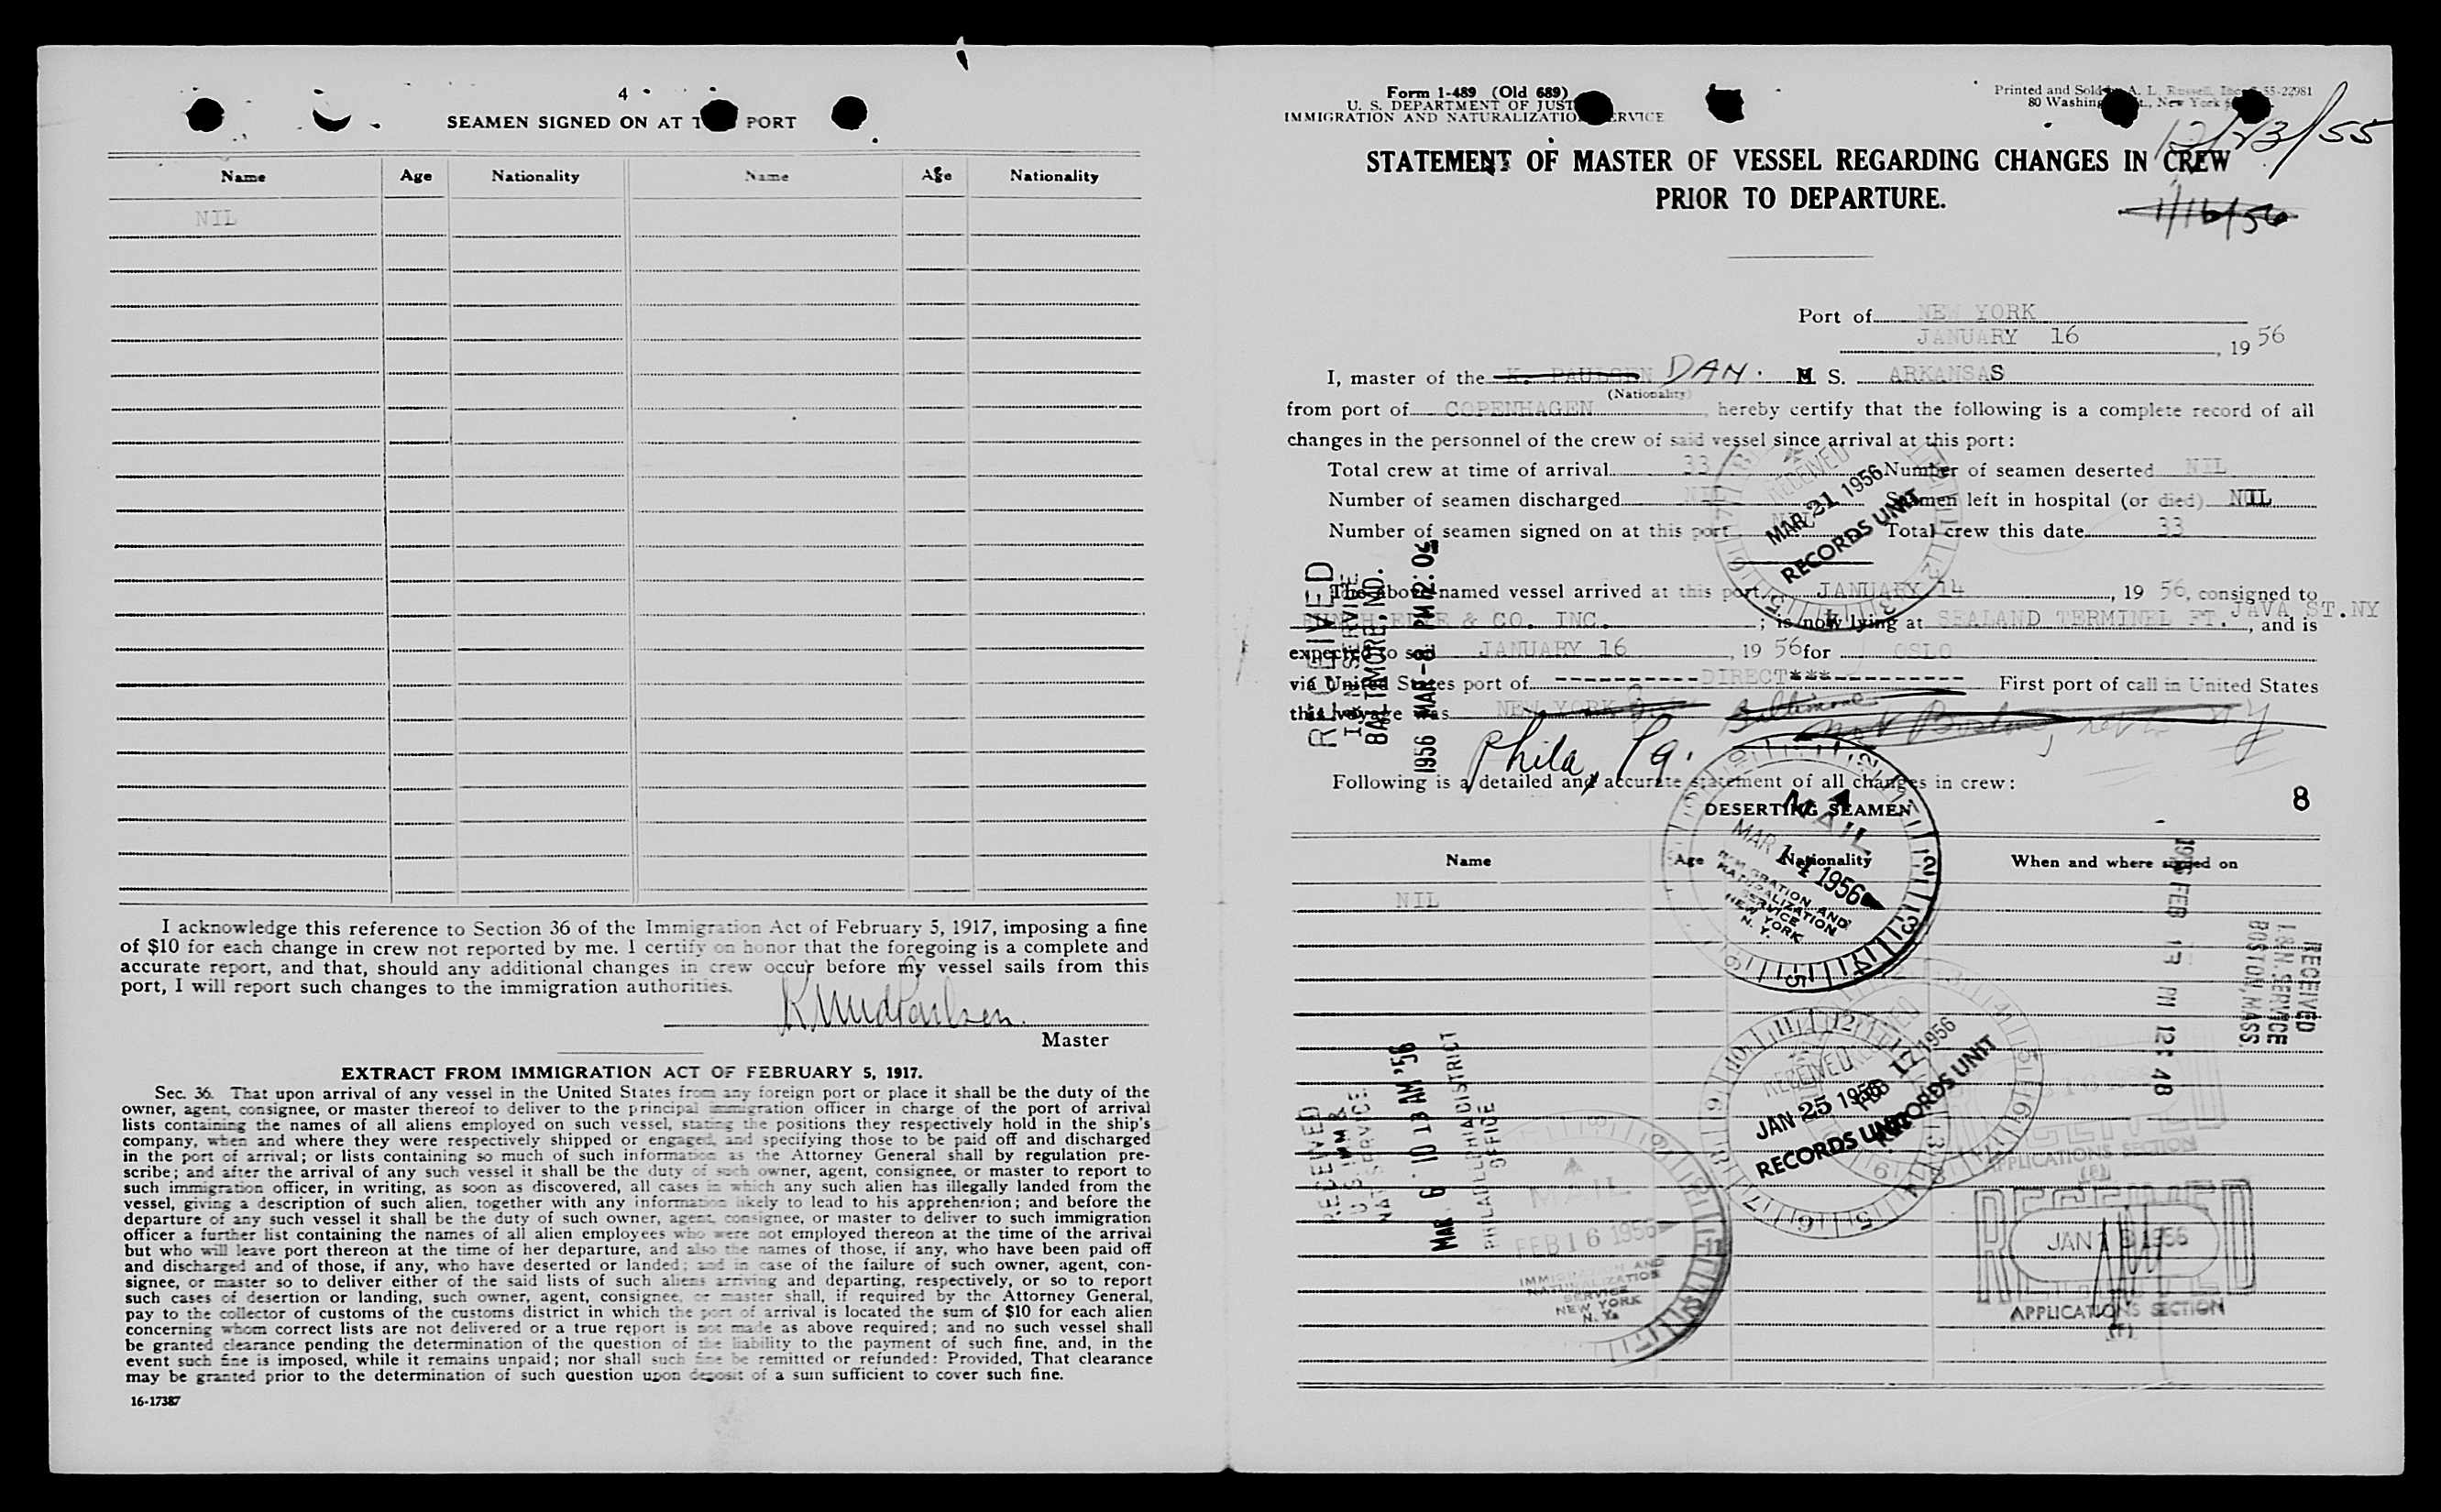 4
SEAMEN SIGNED ON AT PORT
Name Age Nationality Name Age Nationality
NIL
I acknowledge this reference to Section 36 of the Immigration Act of February 5, 1917, imposing a fine
of $10 for each change in crew not reported by me. I certify on honor that the foregoing is a complete and
accurate report, and that, should any additional changes in crew occur before my vessel sails from this
port, I will report such changes to the immigration authorities.
Knud Paulsen.
Master
EXTRACT FROM IMMIGRATION ACT OF FEBRUARY 5, 1917.
Sec. 36. That upon arrival of any vessel in the United States from any foreign port or place it shall be the duty of the
owner, agent, consignee, or master thereof to deliver to the principal immigration officer in charge of the port of arrival
lists containing the names of all aliens employed on such vessel, stating the positions they respectively hold in the ship's
company, when and where they were respectively shipped or engaged, and specifying those to be paid off and discharged
in the port of arrival; or lists containing so much of such information as the Attorney General shall by regulation pre-
scribe; and after the arrival of any such vessel it shall be the duty of such owner, agent, consignee, or master to report to
such immigration officer, in writing, as soon as discovered, all cases in which any such alien has illegally landed from the
vessel, giving a description of such alien, together with any information likely to lead to his apprehension; and before the
departure of any such vessel it shall be the duty of such owner, agent, consignee, or master to deliver to such immigration
officer a further list containing the names of all alien employees who were not employed thereon at the time of the arrival
but who will leave port thereon at the time of her departure, and also the names of those, if any, who have been paid off
and discharged and of those, if any, who have deserted or landed; and in case of the failure of such owner, agent, con-
signee, or master so to deliver either of the said lists of such aliens arriving and departing, respectively, or so to report
such cases of desertion or landing, such owner, agent, consignee, or master shall, if required by the Attorney General,
pay to the collector of customs of the customs district in which the port of arrival is located the sum of $10 for each alien
concerning whom correct lists are not delivered or a true report is not made as above required; and no such vessel shall
be granted clearance pending the determination of the question of the liability to the payment of such fine, and, in the
event such fine is imposed, while it remains unpaid; nor shall such fine be remitted or refunded: Provided, That clearance
may be granted prior to the determination of such question upon deposit of a sum sufficient to cover such fine.
16-17387
Form 1-489 (Old 689)
U. S. DEPARTMENT OF JUST
IMMIGRATION AND NATURALIZATIO ERVICE
Printed and Sold by A. L. Russell, Inc. 55-22981
80 Washing t., New York 6
12/23/55
STATEMENT OF MASTER OF VESSEL REGARDING CHANGES IN CREW
PRIOR TO DEPARTURE.
1/16/56
Port of NEW YORK
JANUARY 16, 19 56
I, master of the K. PAULSEN DAN. M S. ARKANSAS
(Nationality)
from port of COPENHAGEN, hereby certify that the following is a complete record of all
changes in the personnel of the crew of said vessel since arrival at this port:
Total crew at time of arrival 33 Number of seamen deserted NIL
Number of seamen discharged NIL Seamen left in hospital (or died) NIL
Number of seamen signed on at this port NIL Total crew this date 33
The above-named vessel arrived at this port JANUARY 14, 19 56, consigned to
& CO. INC. ; is now lying at SEALAND TERMINEL FT. JAVA ST.NY, and is
expected to sail JANUARY 16, 19 56 for OSLO
via United States port of -----------DIRECT***----------- First port of call in United States
this voyage was NEW YORK Baltimore
Next Boston, next NY
Phila, Pa.
Following is a detailed and accurate statement of all changes in crew:
8
DESERTING SEAMEN
Name Age Nationality When and where signed on
NIL
RECEIVED
MAR 21 1956
RECORDS UNIT
RECEIVED
I & N. SERVICE
BALTIMORE, MD.
1956 MAR-8 PM 2:06
MAIL
MAR 14 1956
IMMIGRATION AND
NATURALIZATION
SERVICE
NEW YORK
N. Y.
1956 FEB 13 PM 12:48
RECEIVED
I.& N. SERVICE
BOSTON, MASS.
RECEIVED
JAN 25 1956
RECORDS UNIT
RECEIVED
FEB 17 1956
RECORDS UNIT
RECEIVED
U S IMM &
NAT SERVICE
MAR 6 10 13 AM '56
PHILADELPHIA DISTRICT
OFFICE
MAIL
FEB 16 1956
IMMIGRATION AND
NATURALIZATION
SERVICE
NEW YORK
N. Y.
APPLICATIONS SECTION
RECEIVED
JAN 1 1956
APPLICATIONS SECTION
(F)